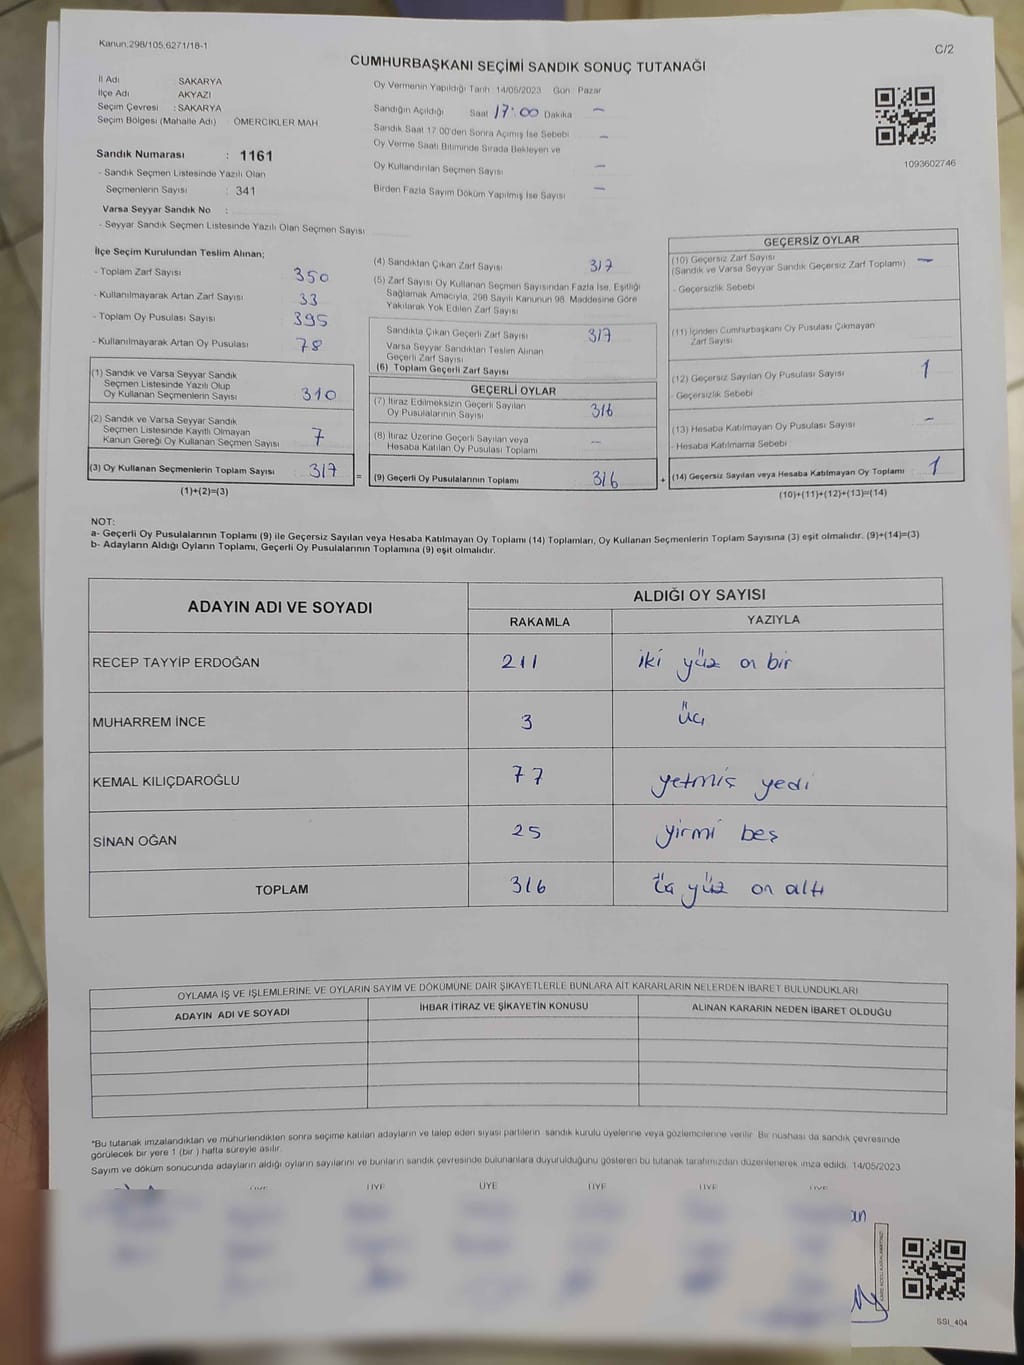 Kanun,298/105,6271/18-1
C/2
CUMHURBAŞKANI SEÇİMİ SANDIK SONUÇ TUTANAĞI
İl Adı SAKARYA
İlçe Adı AKYAZI
Seçim Çevresi : SAKARYA
Seçim Bölgesi (Mahalle Adı) ÖMERCİKLER MAH
Oy Vermenin Yapıldığı Tarih 14/05/2023 Gün : Pazar
Sandığın Açıldığı Saat 17:00 Dakika —
Sandık Saat 17.00'den Sonra Açımış İse Sebebi —
Oy Verme Saati Bitiminde Sırada Bekleyen ve
Oy Kullandırılan Seçmen Sayısı —
Birden Fazla Sayım Döküm Yapılmış İse Sayısı —
1093602746
Sandık Numarası : 1161
- Sandık Seçmen Listesinde Yazılı Olan
Seçmenlerin Sayısı : 341
Varsa Seyyar Sandık No :
- Seyyar Sandık Seçmen Listesinde Yazılı Olan Seçmen Sayısı
İlçe Seçim Kurulundan Teslim Alınan;
- Toplam Zarf Sayısı 350
- Kullanılmayarak Artan Zarf Sayısı 33
- Toplam Oy Pusulası Sayısı 395
- Kullanılmayarak Artan Oy Pusulası 78
(1) Sandık ve Varsa Seyyar Sandık
Seçmen Listesinde Yazılı Olup
Oy Kullanan Seçmenlerin Sayısı 310
(2) Sandık ve Varsa Seyyar Sandık
Seçmen Listesinde Kayıtlı Olmayan
Kanun Gereği Oy Kullanan Seçmen Sayısı 7
(3) Oy Kullanan Seçmenlerin Toplam Sayısı 317 =
(1)+(2)=(3)
(4) Sandıktan Çıkan Zarf Sayısı 317
(5) Zarf Sayısı Oy Kullanan Seçmen Sayısından Fazla İse, Eşitliği
Sağlamak Amacıyla, 298 Sayılı Kanunun 98. Maddesine Göre
Yakılarak Yok Edilen Zarf Sayısı
Sandıkta Çıkan Geçerli Zarf Sayısı 317
Varsa Seyyar Sandıktan Teslim Alınan
Geçerli Zarf Sayısı
(6) Toplam Geçerli Zarf Sayısı
GEÇERLİ OYLAR
(7) İtiraz Edilmeksizin Geçerli Sayılan
Oy Pusulalarının Sayısı 316
(8) İtiraz Üzerine Geçerli Sayılan veya
Hesaba Katılan Oy Pusulası Toplamı —
(9) Geçerli Oy Pusulalarının Toplamı 316 +
GEÇERSİZ OYLAR
(10) Geçersiz Zarf Sayısı
(Sandık ve Varsa Seyyar Sandık Geçersiz Zarf Toplamı) —
- Geçersizlik Sebebi
(11) İçinden Cumhurbaşkanı Oy Pusulası Çıkmayan
Zarf Sayısı
(12) Geçersiz Sayılan Oy Pusulası Sayısı 1
- Geçersizlik Sebebi
(13) Hesaba Katılmayan Oy Pusulası Sayısı —
- Hesaba Katılmama Sebebi
(14) Geçersiz Sayılan veya Hesaba Katılmayan Oy Toplamı 1
(10)+(11)+(12)+(13)=(14)
NOT:
a- Geçerli Oy Pusulalarının Toplamı (9) ile Geçersiz Sayılan veya Hesaba Katılmayan Oy Toplamı (14) Toplamları, Oy Kullanan Seçmenlerin Toplam Sayısına (3) eşit olmalıdır. (9)+(14)=(3)
b- Adayların Aldığı Oyların Toplamı, Geçerli Oy Pusulalarının Toplamına (9) eşit olmalıdır.
ADAYIN ADI VE SOYADI ALDIĞI OY SAYISI
RAKAMLA YAZIYLA
RECEP TAYYİP ERDOĞAN 211 iki yüz on bir
MUHARREM İNCE 3 üç
KEMAL KILIÇDAROĞLU 77 yetmiş yedi
SİNAN OĞAN 25 yirmi beş
TOPLAM 316 üç yüz on altı
OYLAMA İŞ VE İŞLEMLERİNE VE OYLARIN SAYIM VE DÖKÜMÜNE DAİR ŞİKAYETLERLE BUNLARA AİT KARARLARIN NELERDEN İBARET BULUNDUKLARI
ADAYIN ADI VE SOYADI İHBAR İTİRAZ VE ŞİKAYETİN KONUSU ALINAN KARARIN NEDEN İBARET OLDUĞU
*Bu tutanak imzalandıktan ve mühürlendikten sonra seçime katılan adayların ve talep eden siyasi partilerin sandık kurulu üyelerine veya gözlemcilerine verilir. Bir nüshası da sandık çevresinde
görülecek bir yere 1 (bir ) hafta süreyle asılır.
Sayım ve döküm sonucunda adayların aldığı oyların sayılarını ve bunların sandık çevresinde bulunanlara duyurulduğunu gösteren bu tutanak tarafımızdan düzenlenerek imza edildi. 14/05/2023
ÜYE ÜYE ÜYE ÜYE ÜYE ÜYE
an
SSI_404